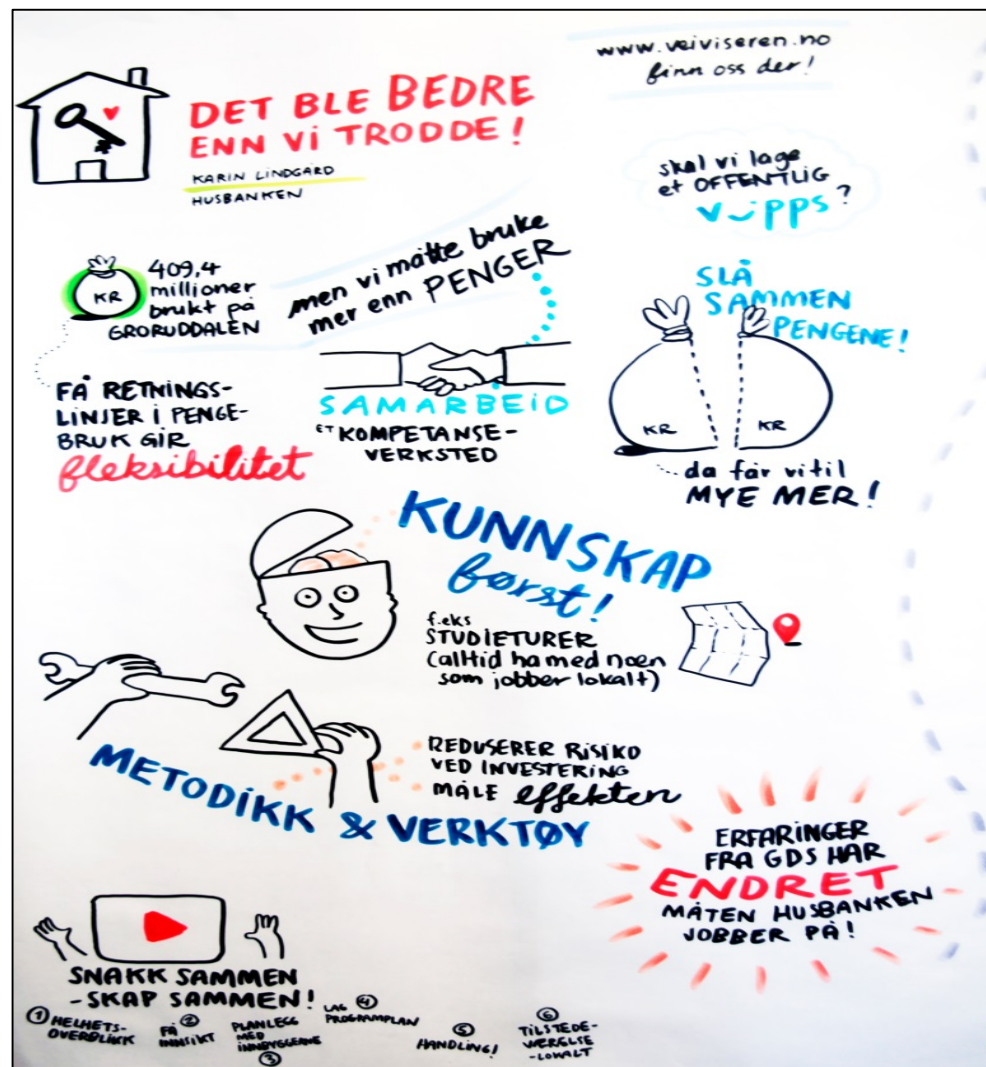 www.veiviseren.no
finn oss der!
DET BLE BEDRE
ENN Vi TRODDE!
KARIN LINDGÅRD
HUSBANKEN
skal vi lage
et OFFENTLIG
vipps?
KR
409,4
millioner
brukt på
GRORUDDALEN
men vi måtte bruke
mer enn PENGER
SLÅ
SAMMEN
PENGENE!
FÅ RETNINGS-
LINJER i PENGE-
BRUK GiR
fleksibilitet
SAMARBEiD
ET KOMPETANSE-
VERKSTED
KR
KR
da får vi til
MYE MER!
KUNNSKAP
først!
f.eks
STUDIETURER
(alltid ha med noen
som jobber lokalt)
REDUSERER RiSiKO
VED INVESTERING
MÅLE effekten
METODiKK & VERKTØY
ERFARiNGER
FRA GDS HAR
ENDRET
MÅTEN HUSBANKEN
JOBBER PÅ!
SNAKK SAMMEN
- SKAP SAMMEN!
① HELHETS-
OVERBLIKK
②
FÅ
INNSIKT
PLANLEGG
MED
INNBYGGERNE
③
④
LAG
PROGRAMPLAN
⑤
HANDLING!
⑥
TILSTEDE-
VÆRELSE
-LOKALT